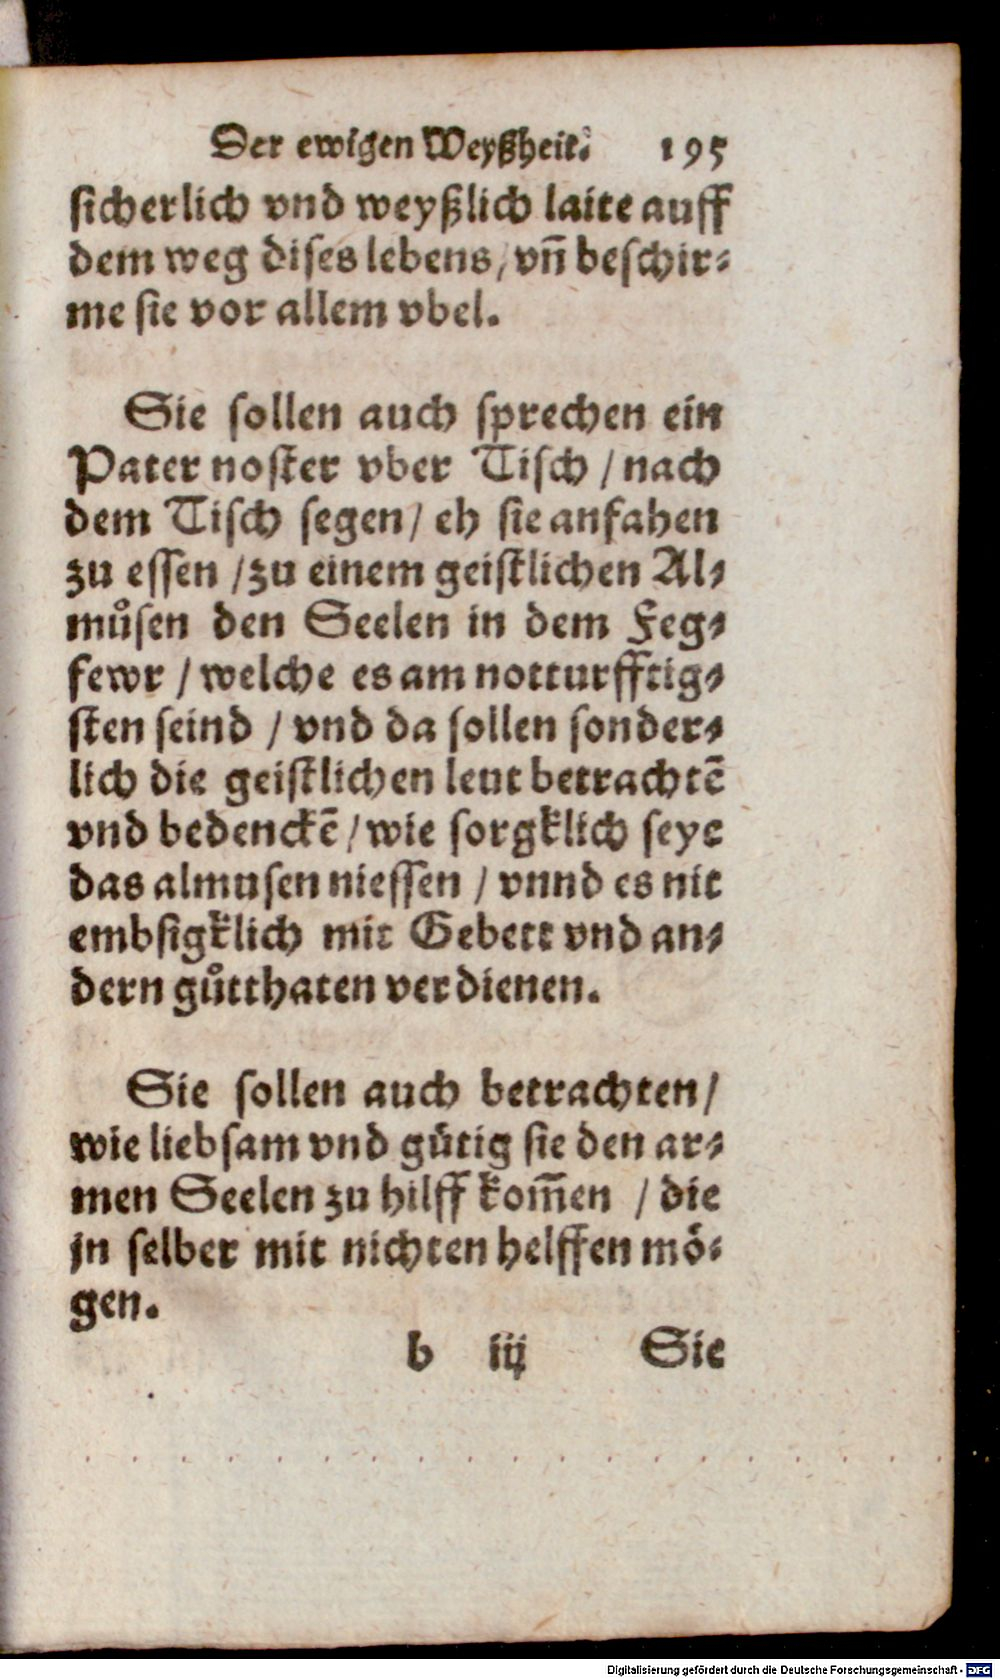 Der ewigen Weyßheit. 195
sicherlich vnd weyßlich laite auff
dem weg dises lebens, vn̄ beschir-
me sie vor allem vbel.
Sie sollen auch sprechen ein
Pater noster vber Tisch / nach
dem Tisch segen / eh sie anfahen
zu essen / zu einem geistlichen Al-
můsen den Seelen in dem Feg-
fewr / welche es am notturfftig-
sten seind / vnd da sollen sonder-
lich die geistlichen leut betrachtē
vnd bedenckē / wie sorgklich seye
das almusen niessen / vnnd es nit
embsigklich mit Gebett vnd an-
dern gůtthaten verdienen.
Sie sollen auch betrachten /
wie liebsam vnd gütig sie den ar-
men Seelen zu hilff kom̄en / die
jn selber mit nichten helffen mö-
gen.
b iij Sie
Digitalisierung gefördert durch die Deutsche Forschungsgemeinschaft - DFG